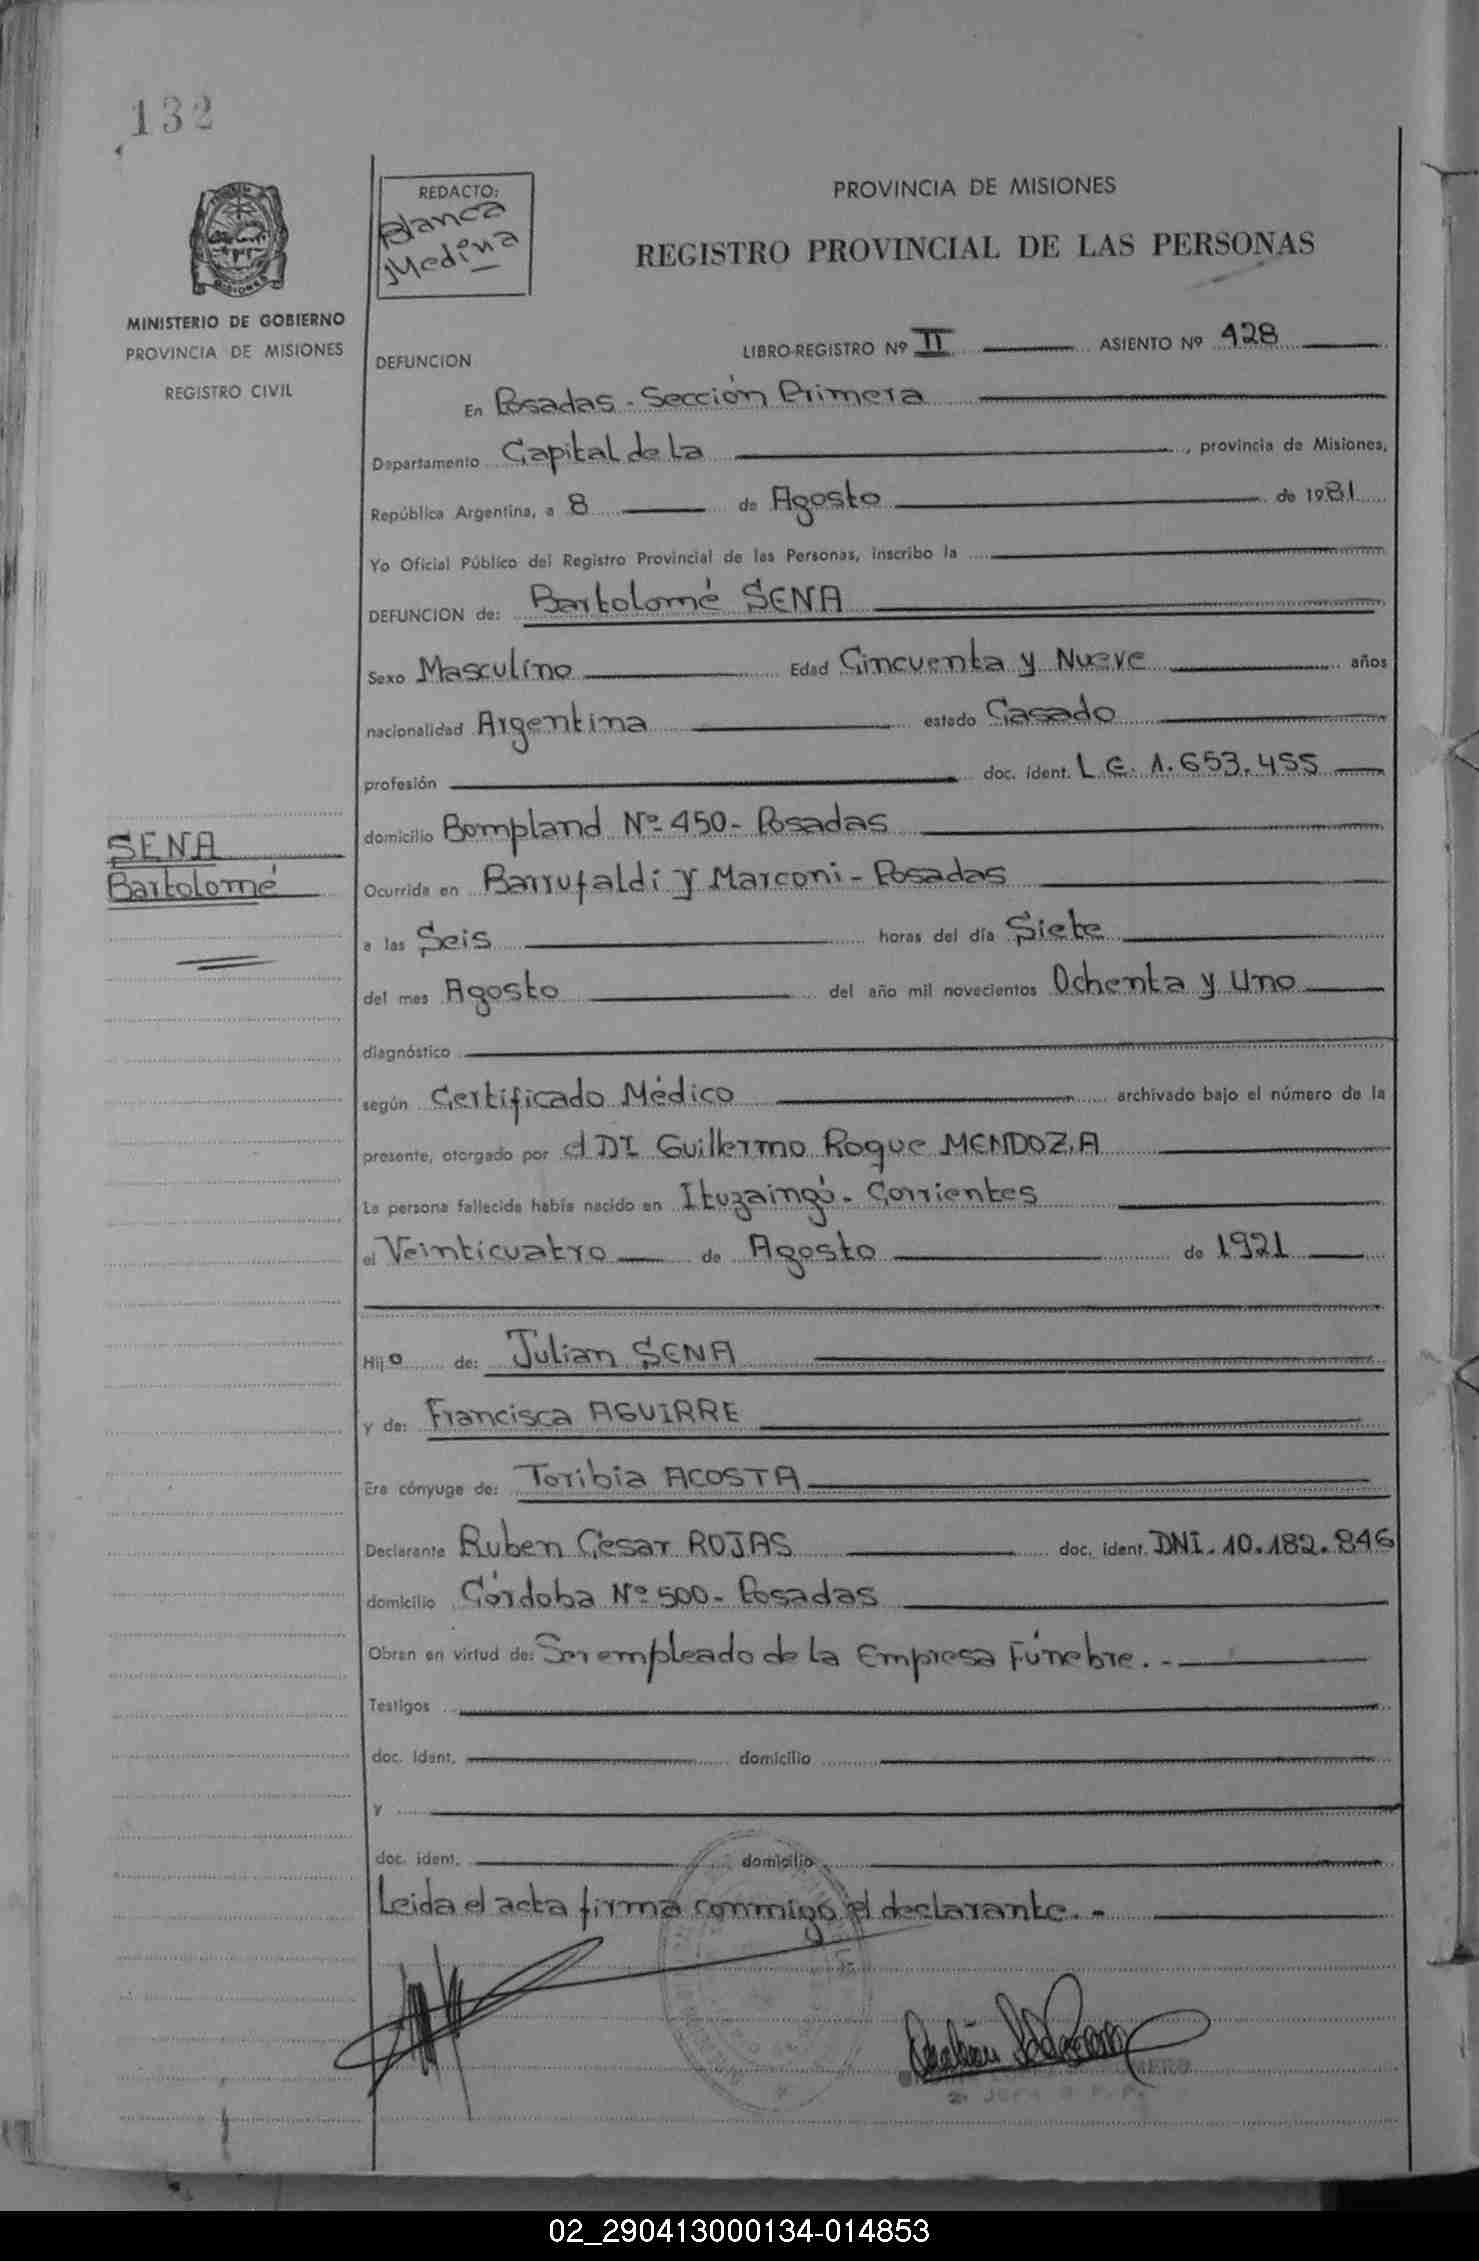 132
REDACTO:
Blanca
Medina
PROVINCIA DE MISIONES
REGISTRO PROVINCIAL DE LAS PERSONAS
MISIONES
MINISTERIO DE GOBIERNO
PROVINCIA DE MISIONES
REGISTRO CIVIL
DEFUNCION LIBRO-REGISTRO Nº II ASIENTO Nº 428
En Posadas - Sección Primera
Departamento Capital de La, provincia de Misiones,
República Argentina, a 8 de Agosto de 1981
Yo Oficial Público del Registro Provincial de las Personas, inscribo la
DEFUNCION de: Bartolomé SENA
Sexo Masculino Edad Cincuenta y Nueve años
nacionalidad Argentina estado Casado
profesión doc. ident. L.E. 1.653.455
domicilio Bompland Nº 450 - Posadas
SENA
Bartolomé
Ocurrida en Barrufaldi y Marconi - Posadas
a las Seis horas del día Siete
del mes Agosto del año mil novecientos Ochenta y Uno
diagnóstico
según Certificado Médico archivado bajo el número de la
presente, otorgado por el Dr Guillermo Roque MENDOZA
La persona fallecida había nacido en Ituzaingó - Corrientes
el Veinticuatro de Agosto de 1921
Hijo de: Julian SENA
y de: Francisca AGUIRRE
Era cónyuge de: Toribia ACOSTA
Declarante Ruben César ROJAS doc. ident. DNI. 10.182.846
domicilio Córdoba Nº 500 - Posadas
Obran en virtud de: Ser empleado de la Empresa Fúnebre. -
Testigos
doc. ident. domicilio
y
doc. ident. domicilio
Leida el acta firma conmigo el declarante. -
02_290413000134-014853